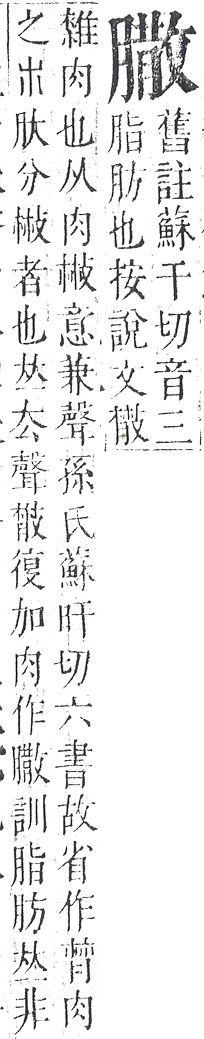 舊註蘇干切音三
脂肪也按說文散
雜肉也从肉㪔意兼聲孫氏蘇旰切六書故省作肉
之朩肰分㪔者也𠀤厺聲散復加肉作訓脂肪𠀤非